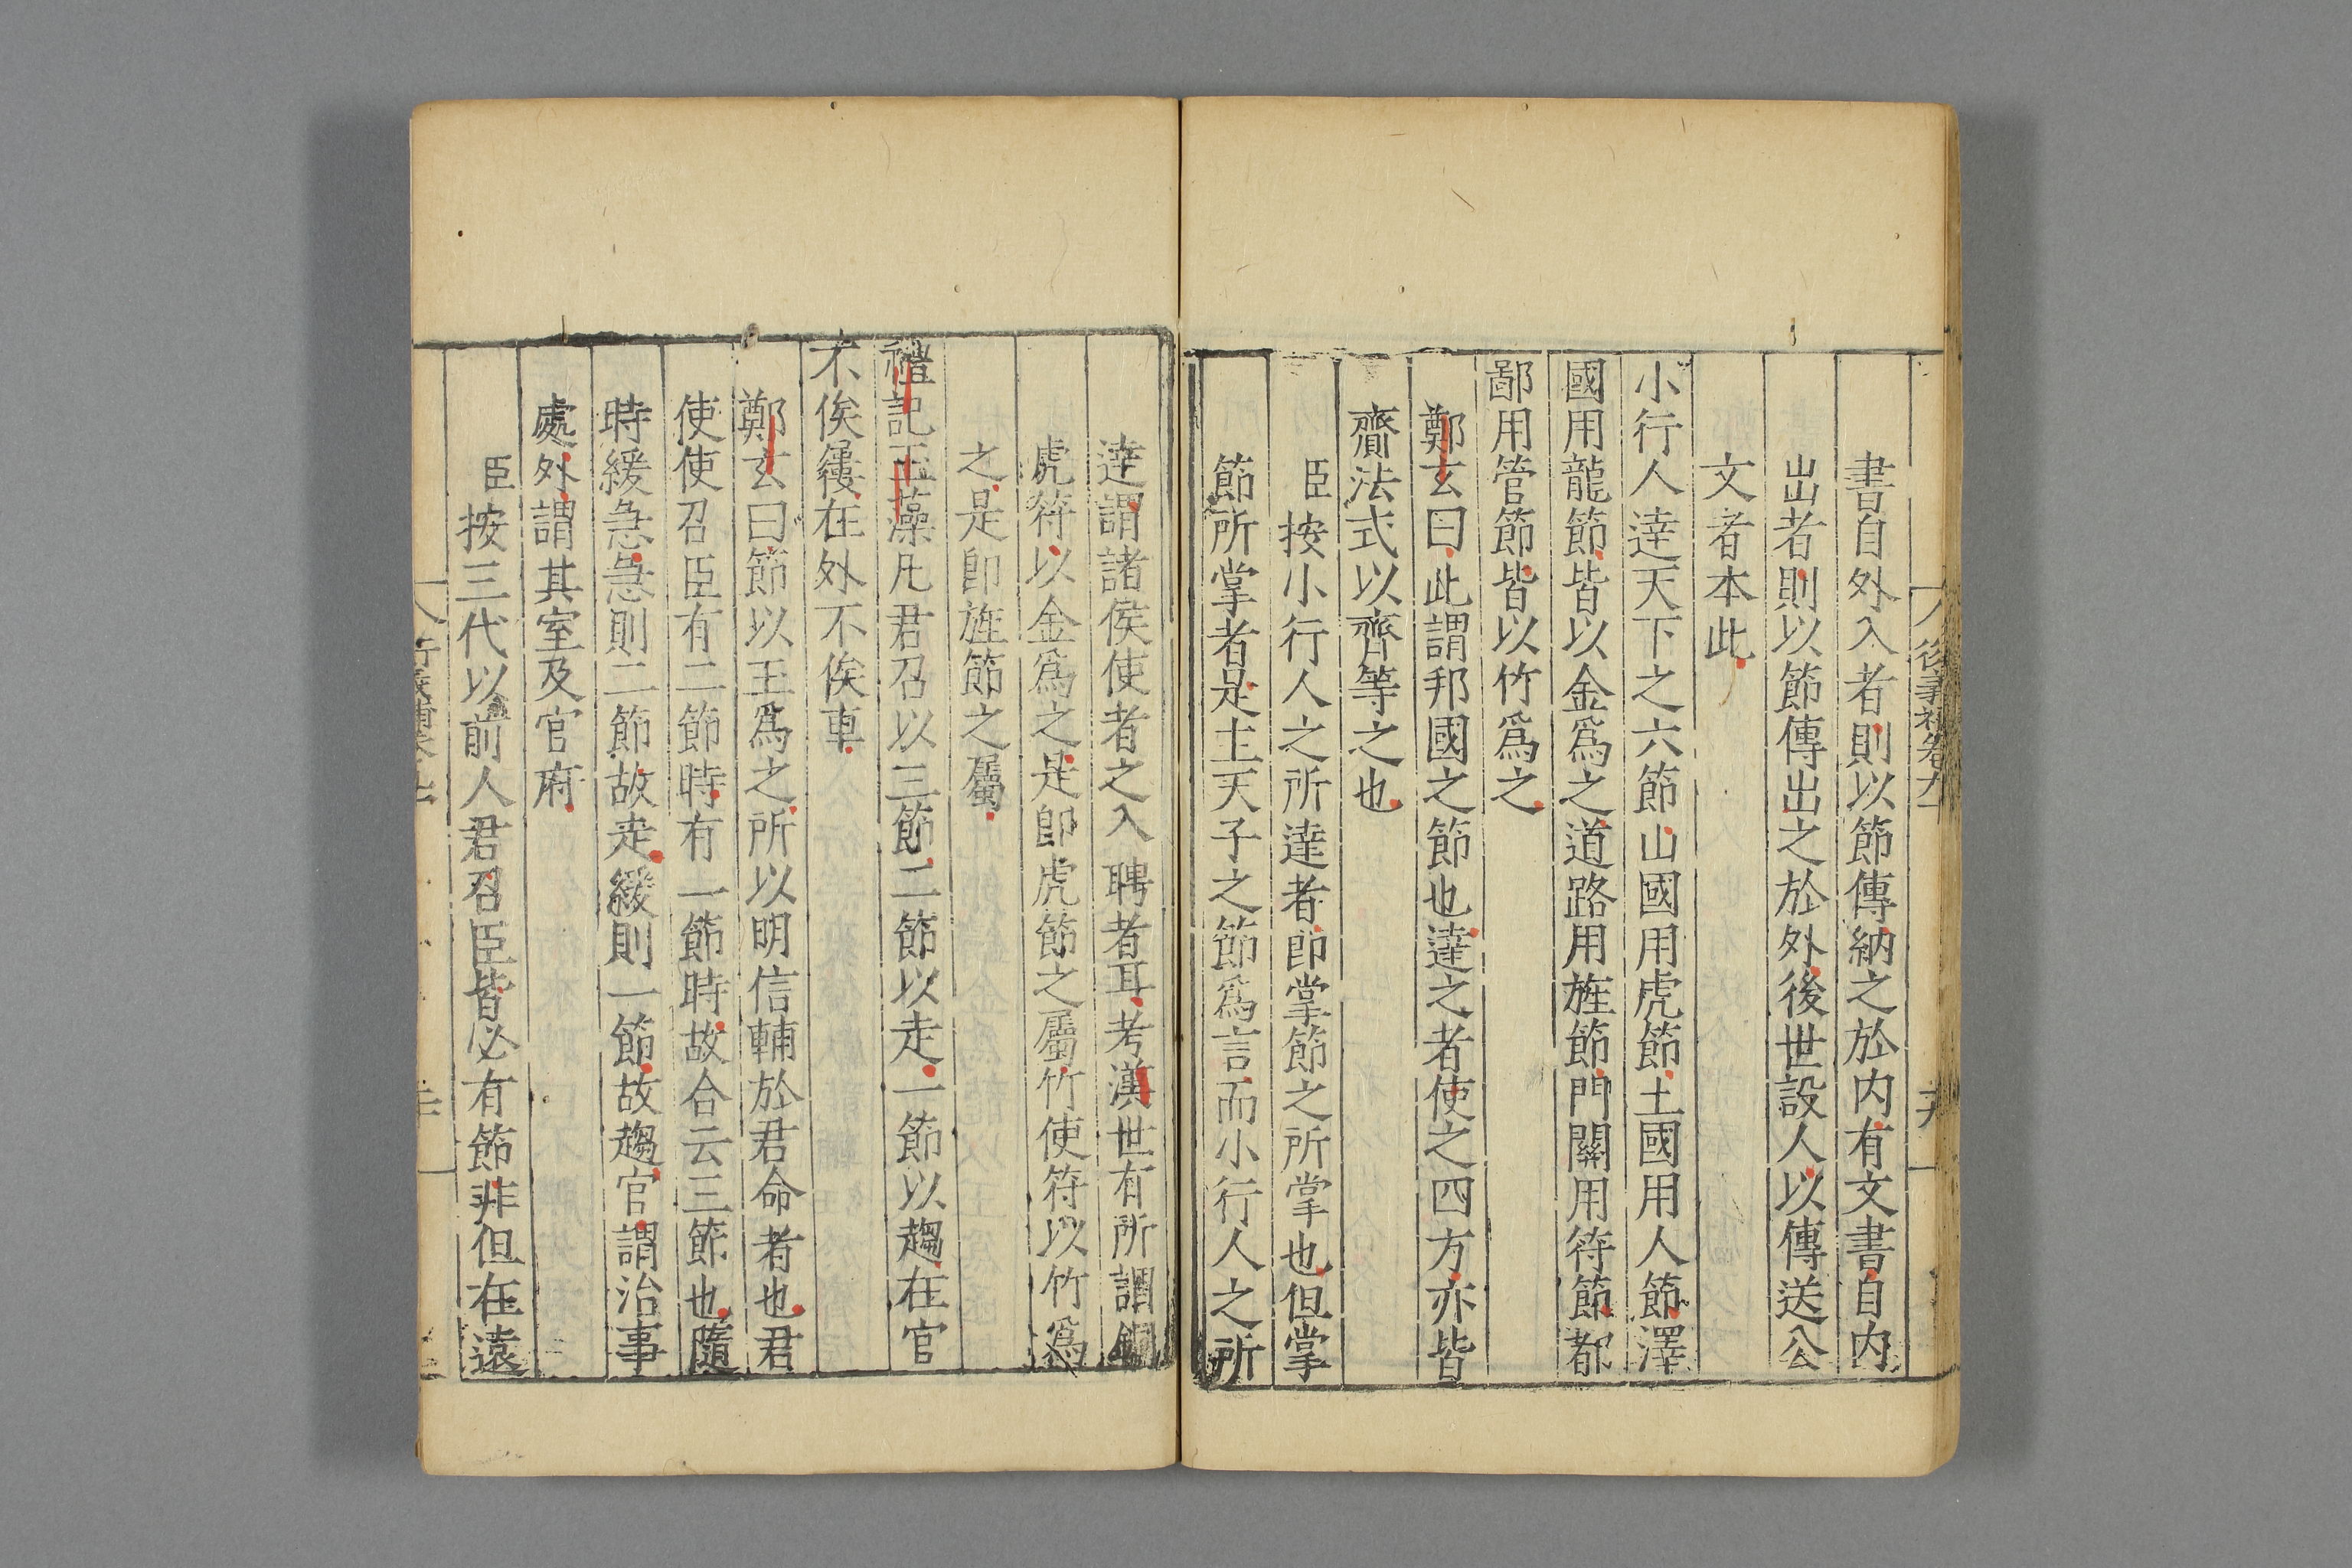 書自外入者則以節傳納之於内有文書自内
出者則以節傳出之於外後世設人以傳送公
文者本此
小行人達天下之六節山國用虎節土國用人節澤
國用龍節皆以金爲之道路用旌節門關用符節都
鄙用管節皆以竹爲之
鄭玄曰此謂邦國之節也達之者使之四方亦皆
齎法式以齊等之也
臣按小行人之所達者即掌節之所掌也但掌
節所掌者是主天子之節爲言而小行人之所
達謂諸侯使者之入聘者耳考漢世有所謂銅
虎符以金爲之是即虎節之屬竹使符以竹爲
之是即旌節之屬
禮記玉藻凡君召以三節二節以走一節以趨在官
不俟屨在外不俟車
鄭玄曰節以王爲之所以明信輔於君命者也君
使使召臣有二節時有一節時故合云三節也隨
時緩急急則二節故走緩則一節故趨官謂治事
處外謂其室及官府
臣按三代以前人君召臣皆必有節非但在遠